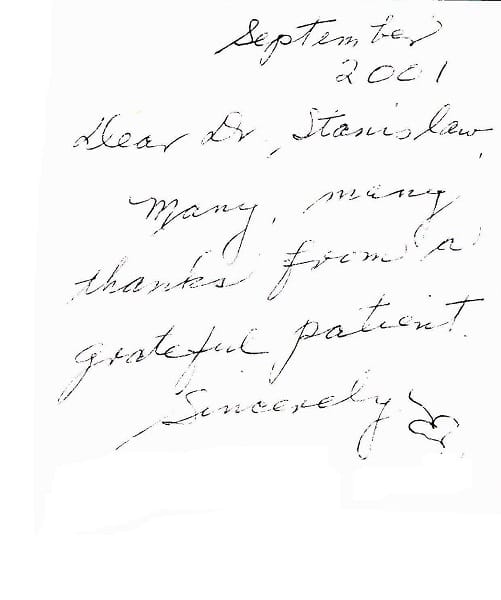 September
2001
Dear Dr. Stanislaw,
Many, many
thanks from a
grateful patient.
Sincerely